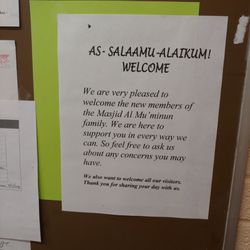 AS- SALAAMU-ALAIKUM!
WELCOME
We are very pleased to
welcome the new members of
the Masjid Al Mu'minun
family. We are here to
support you in every way we
can. So feel free to ask us
about any concerns you may
have.
We also want to welcome all our visitors.
Thank you for sharing your day with us.